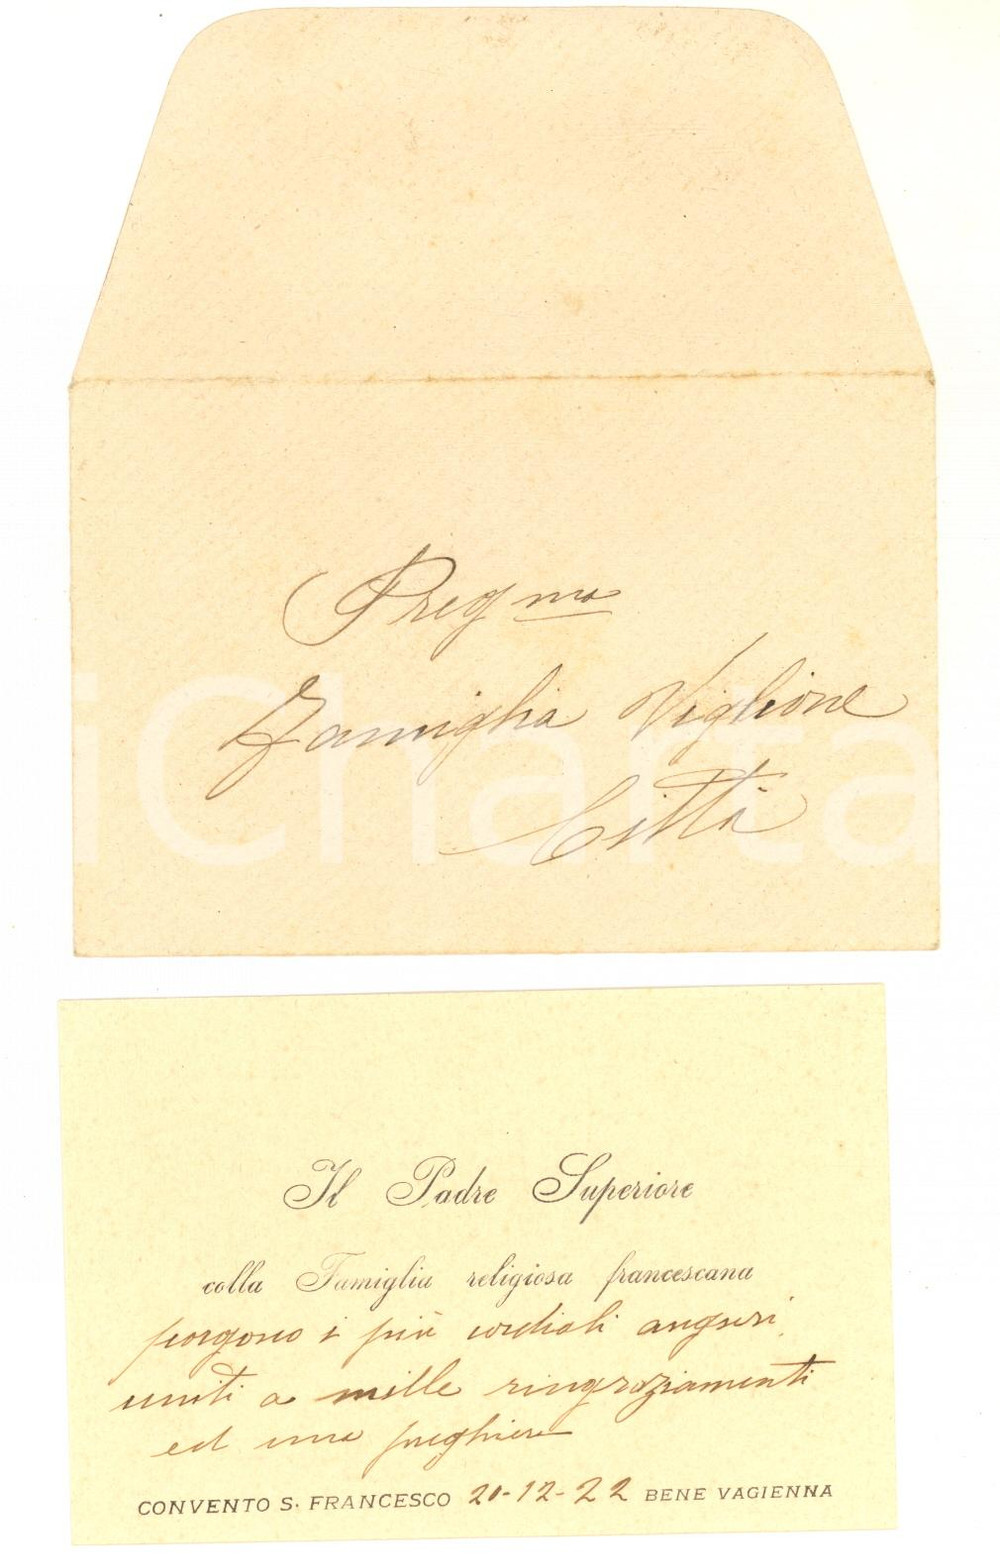 Preg.ma
Famiglia Viglione
Città
iCharta
Il Padre Superiore
colla Famiglia religiosa francescana
porgono i più cordiali auguri
uniti a mille ringraziamenti
ed una preghiera
CONVENTO S. FRANCESCO 20-12-22 BENE VAGIENNA